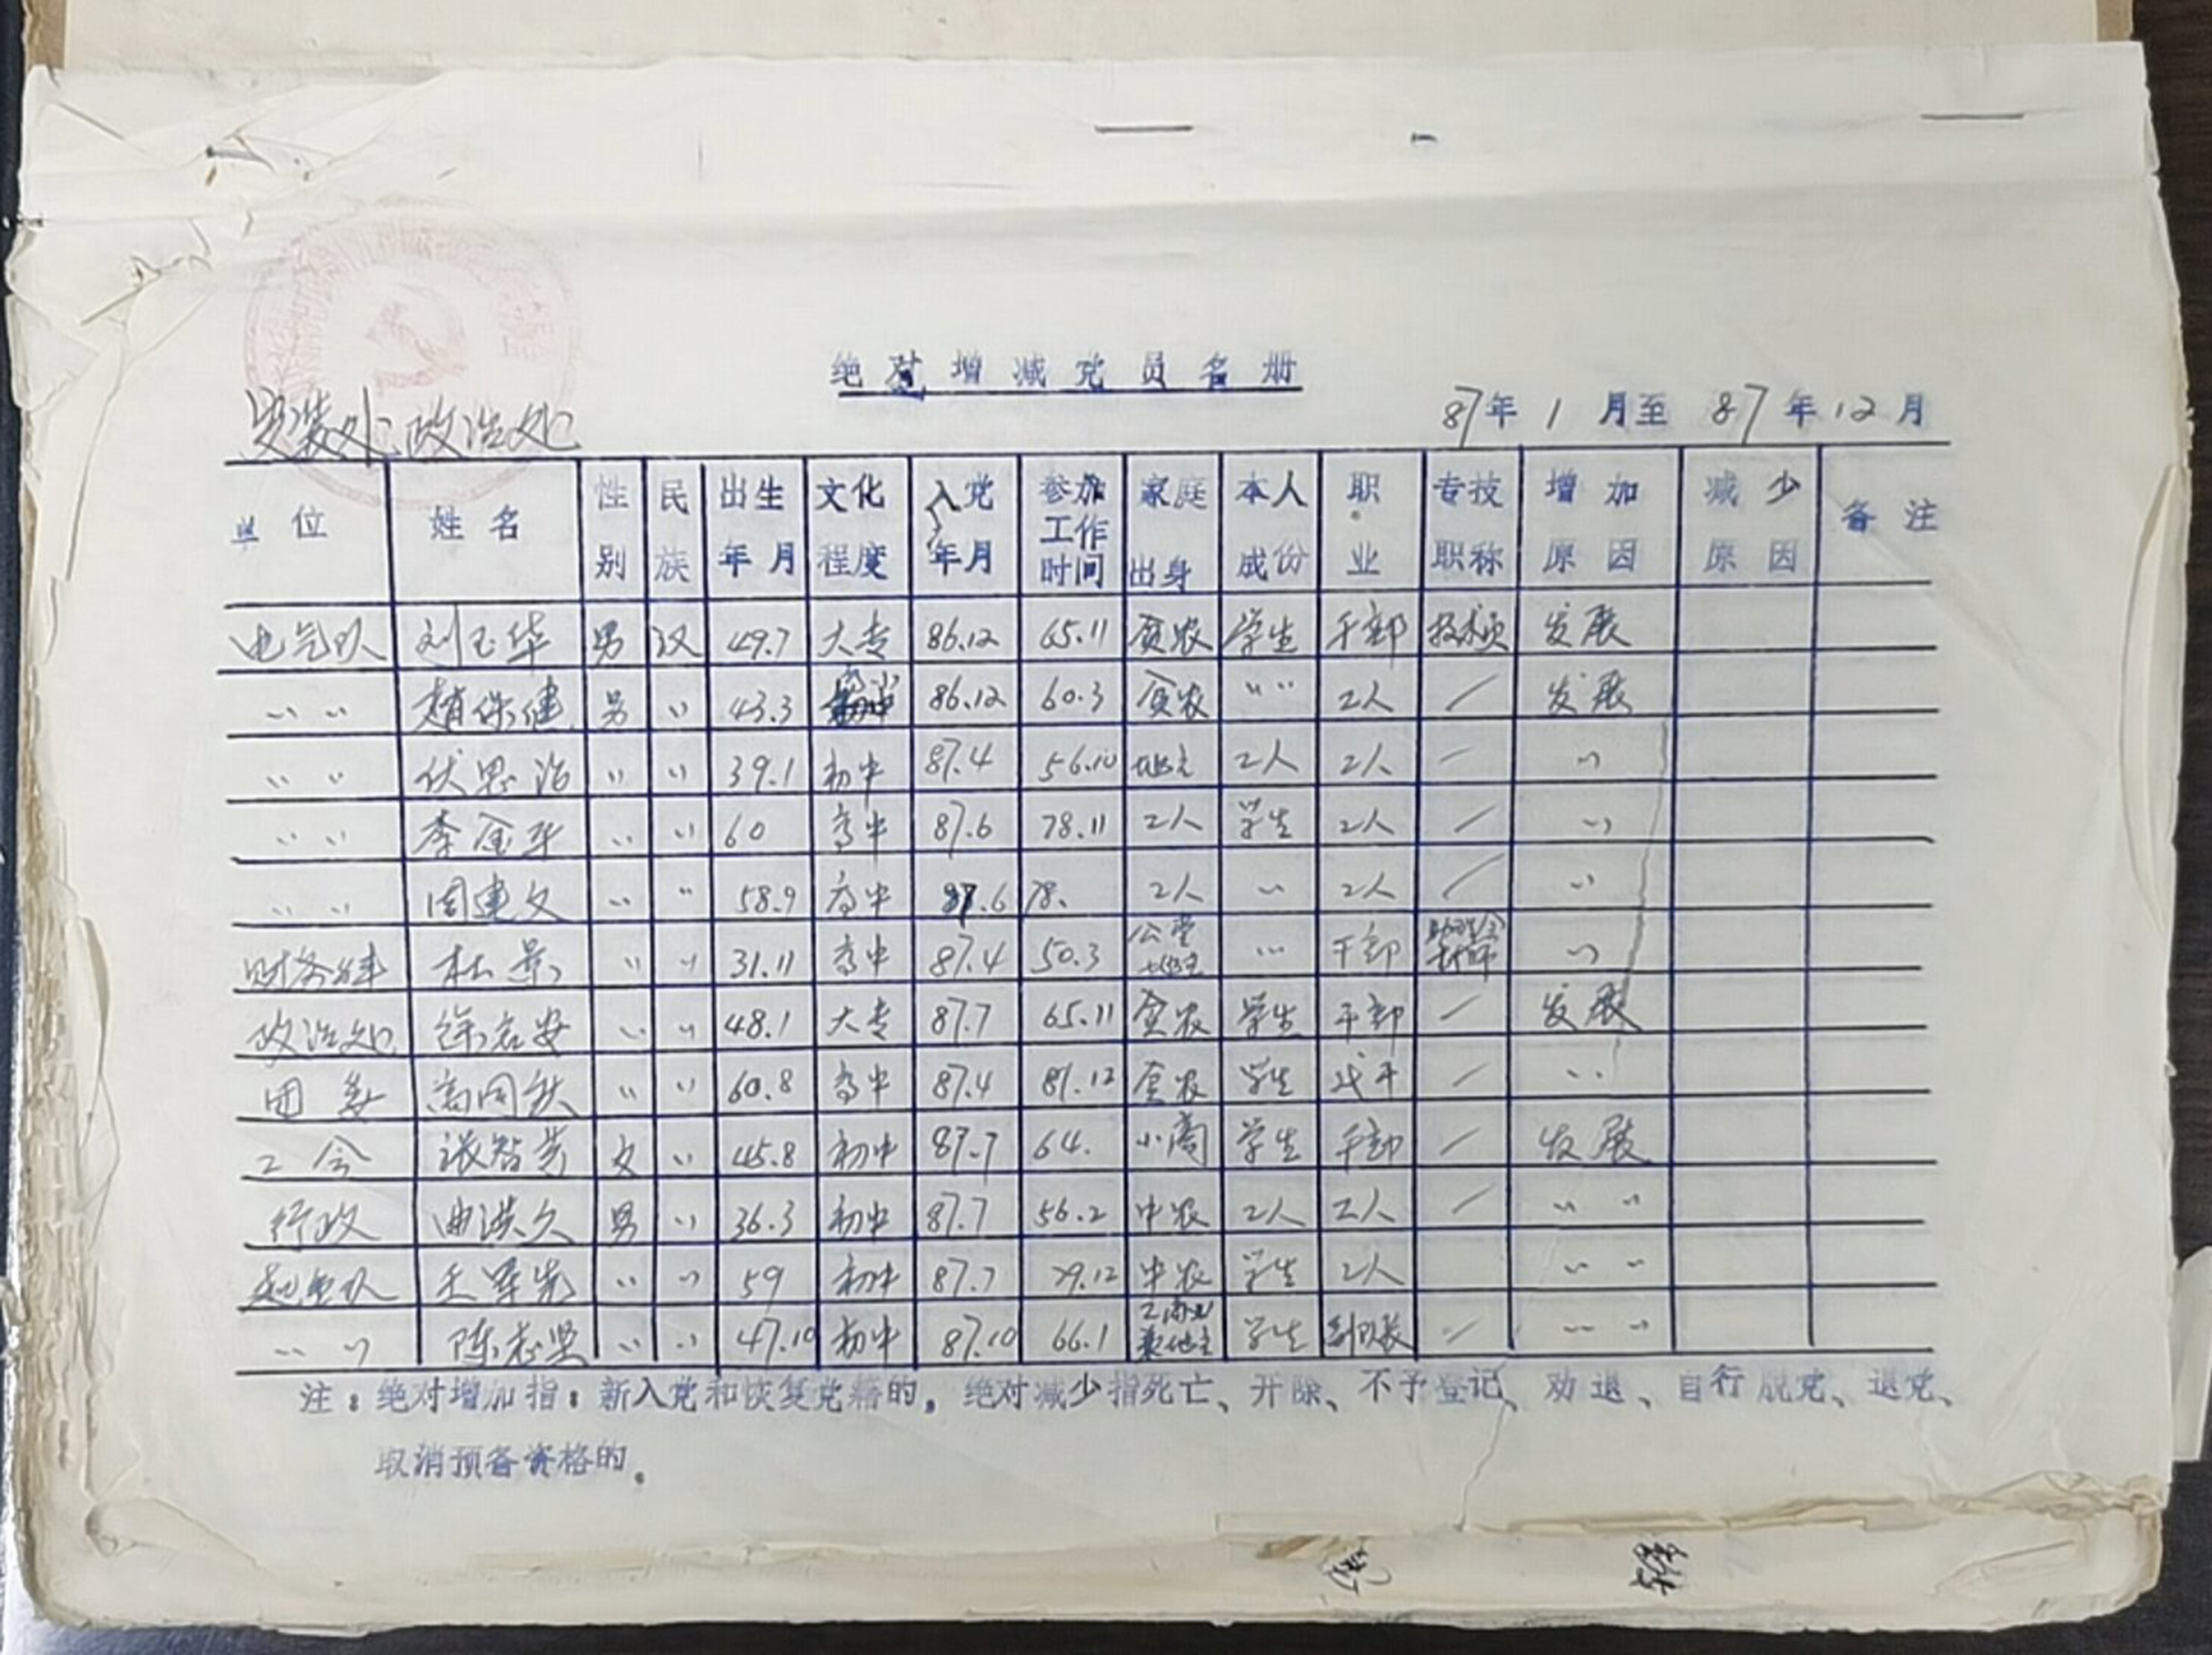 绝对增减党员名册
安装处政治处 87年1月至87年12月
单位 姓名 性别 民族 出生年月 文化程度 入党年月 参加工作时间 家庭出身 本人成份 职业 专技职称 增加原因 减少原因 备注
电气队 刘玉华 男 汉 49.7 大专 86.12 65.11 贫农 学生 干部 技术员 发展
〃 〃 赵保健 男 〃 43.3 86.12 60.3 贫农 〃 〃 工人 / 发展
〃 〃 伏思治 〃 〃 39.1 初中 87.4 56.10 地主 工人 工人 / 〃
〃 〃 李金华 〃 〃 60 高中 87.6 78.11 工人 学生 工人 / 〃
〃 〃 周建文 〃 〃 58.9 高中 87.6 78. 工人 〃 工人 / 〃
财务科 杜景 〃 〃 31.11 高中 87.4 50.3 地主 〃 干部 助理会计师 〃
政治处 徐名安 〃 〃 48.1 大专 87.7 65.11 贫农 学生 干部 / 发展
团委 高同秋 〃 〃 60.8 高中 87.4 81.12 贫农 学生 代干 / 〃
工会 张智芳 女 〃 45.8 初中 87.7 64. 小商 学生 干部 / 发展
行政 曲洪久 男 〃 36.3 初中 87.7 56.2 中农 工人 工人 / 〃 〃
起重队 王军先 〃 〃 59 初中 87.7 79.12 中农 学生 工人 〃 〃
〃 〃 陈志坚 〃 〃 47.10 初中 87.10 66.1 工商业兼地主 学生 副队长 / 〃 〃
注：绝对增加指：新入党和恢复党籍的，绝对减少指死亡、开除、不予登记、劝退、自行脱党、退党、
取消预备资格的。